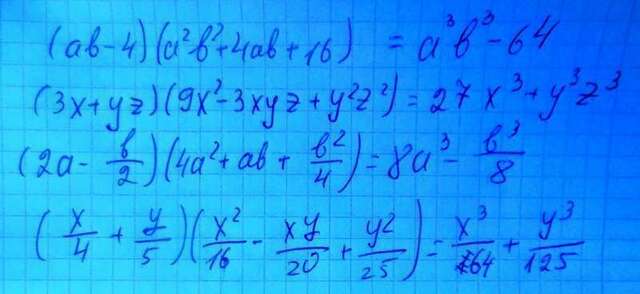 (ab-4)(a²b²+4ab+16) = a³b³-64
(3x+yz)(9x²-3xyz+y²z²)=27x³+y³z³
(2a-b/2)(4a²+ab+b²/4)=8a³-b³/8
(x/4+y/5)(x²/16-xy/20+y²/25)=x³/64+y³/125